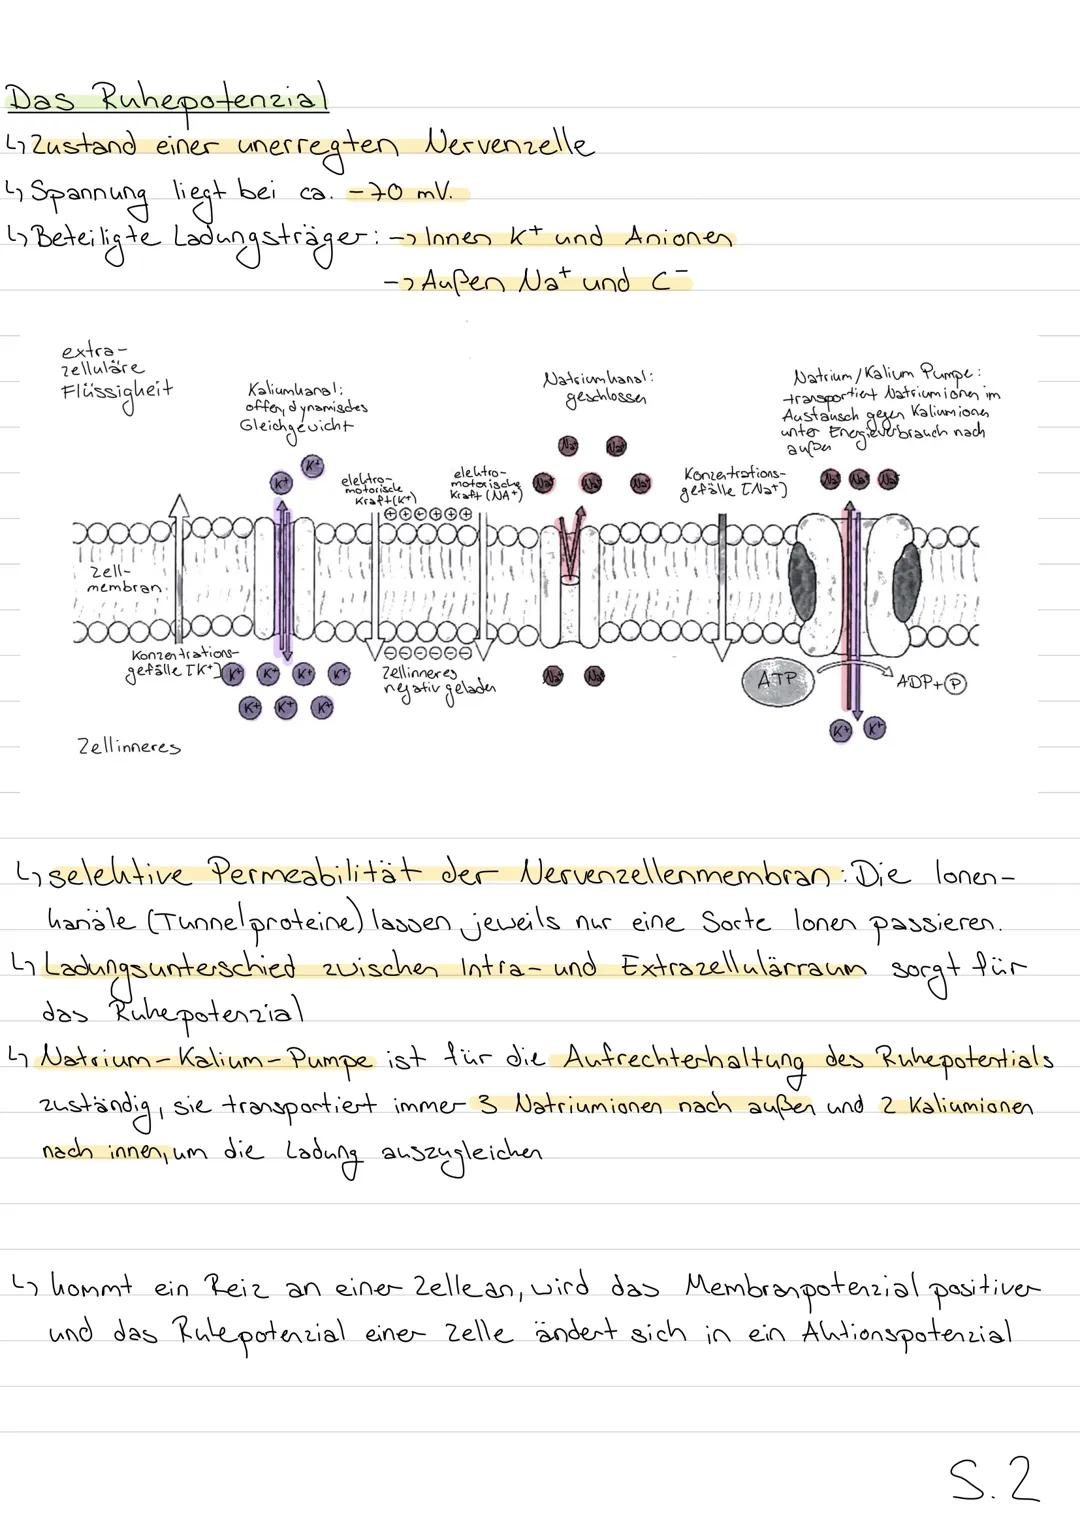 Das Ruhepotenzial
↳ Zustand einer unerregten Nervenzelle
↳ Spannung liegt bei ca. -70 mV.
↳ Beteiligte Ladungsträger: -> Innen K+ und Anionen
-> Außen Na+ und C-
extra-
zelluläre
Flüssigkeit
Kaliumkanal:
offen, dynamisches
Gleichgewicht
K+
K+
elektro-
motorische
Kraft (K+)
⊕⊕⊕⊕⊕⊕
elektro-
motorische
Kraft (NA+)
Natriumkanal:
geschlossen
Na+
Na+
Na+
Na+
Na+
Konzentrations-
gefälle [Na+]
Natrium/Kalium Pumpe:
transportiert Natriumionen im
Austausch gegen Kaliumionen
unter Energieverbrauch nach
außen
Na+
Na+
Na+
Zell-
membran
Konzentrations-
gefälle [K+]
K+ K+ K+ K+
K+ K+ K+
⊖⊖⊖⊖⊖⊖
Zellinneres
negativ geladen
Na+
Na+
ATP
ADP+P
K+ K+
Zellinneres
↳ selektive Permeabilität der Nervenzellenmembran: Die Ionen-
kanäle (Tunnelproteine) lassen jeweils nur eine Sorte Ionen passieren.
↳ Ladungsunterschied zwischen Intra- und Extrazellulärraum sorgt für
das Ruhepotenzial
↳ Natrium-Kalium-Pumpe ist für die Aufrechterhaltung des Ruhepotentials
zuständig, sie transportiert immer 3 Natriumionen nach außen und 2 Kaliumionen
nach innen, um die Ladung auszugleichen
↳ kommt ein Reiz an einer Zelle an, wird das Membranpotenzial positiver
und das Ruhepotenzial einer Zelle ändert sich in ein Aktionspotenzial
S. 2